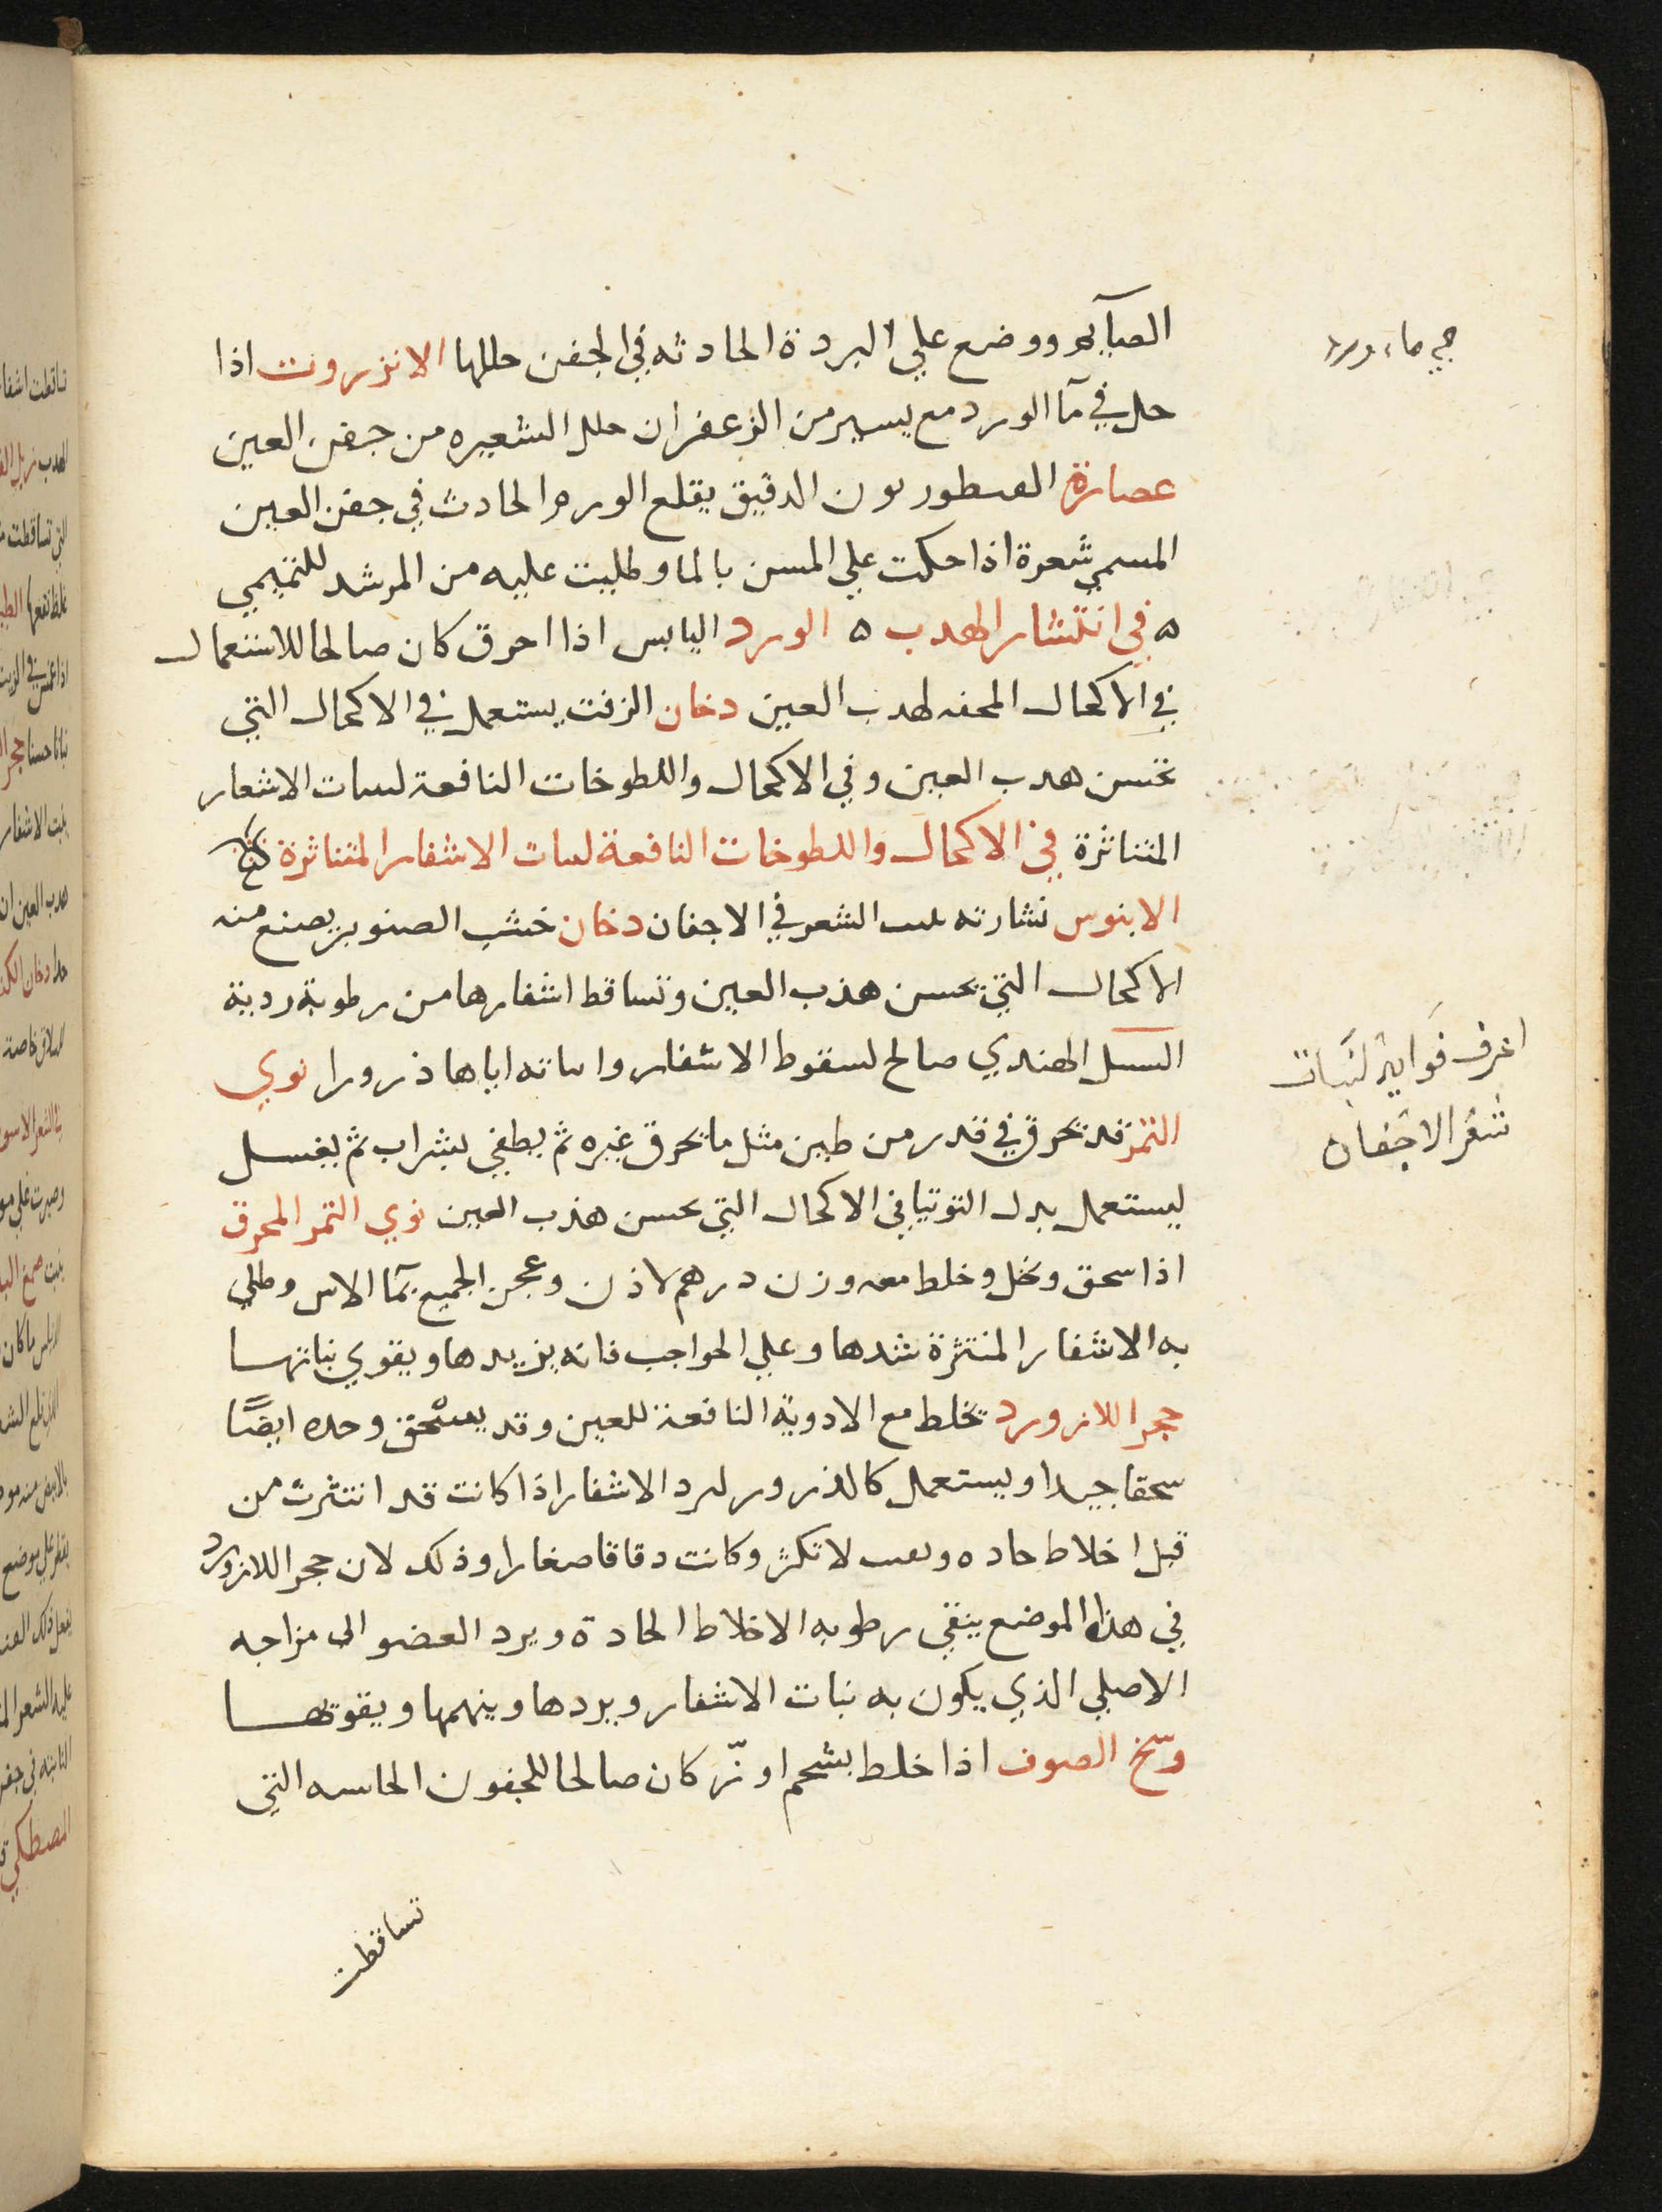 ووضع علي البردة الحادثه في الجفن حللها الانزروت اذا
حل في مآ الورد مع يسير من الزعفران حلل الشعيره من جفن العين
عصارة الدقيق يقلع الورم الحادث في جفن العين
المسمي شعرة اذا حكت علي المسن بالما وطليت عليه من المرشد للتميمي
ه في انتشار الهدب ه الورد اليابس اذا احرق كان صالحا للاستعمال
في الاكحال لهدب العين دخان الزفت يستعمل في الاكحال التي
تحسن هدب العين وفي الاكحال واللطوخات النافعة لسات الاشعار
المتناثرة في الاكحال واللطوخات النافعة لسات الاشفار المتناثرة
الابنوس نشارته الشعر في الاجفان دخان خشب الصنوبر يصنع منه
الاكحال التي تحسن هذب العين وتساقط اشفارها من رطوبة ردية
السنبل الهندي صالح لسقوط الاشفار واساته اياها ذرورا نوي
التمر قد تحرق في قدر من طين مثل ما تحرق غيره ثم يطفي بشراب ثم يغسل
ليستعمل بدل التوتيا في الاكحال التي تحسن هذب العين نوي التمر المحرق
اذا سحق ونخل وخلط معه وزن درهم لاذن وعجن الجميع بمآ الاس وطلي
به الاشفار المنتثرة شدها وعلي الحواجب فانه يزيدها ويقوي نباتها
حجر اللازورد تخلط مع الادوية النافعة للعين وقد يستحق وحده ايضًا
سحقا جيدا ويستعمل كالذرور لرد الاشفار اذا كانت قد انتثرت من
قبل اخلاط حاده لا تكثر وكانت دقاقا صغارا وذلك لان حجر اللازورد
في هذا الموضع ينقي رطوبه الاخلاط الحادة ويرد العضو الى مزاجه
الاصلي الذي يكون به نبات الاشفار ويردها وينهمها ويقوتها
وسخ الصوف اذا خلط بشحم اوزّ كان صالحا للجفون الحاسه التي
تساقطت
في ماء ورد
اعرف فوايد لنبات
شعر الاجفان